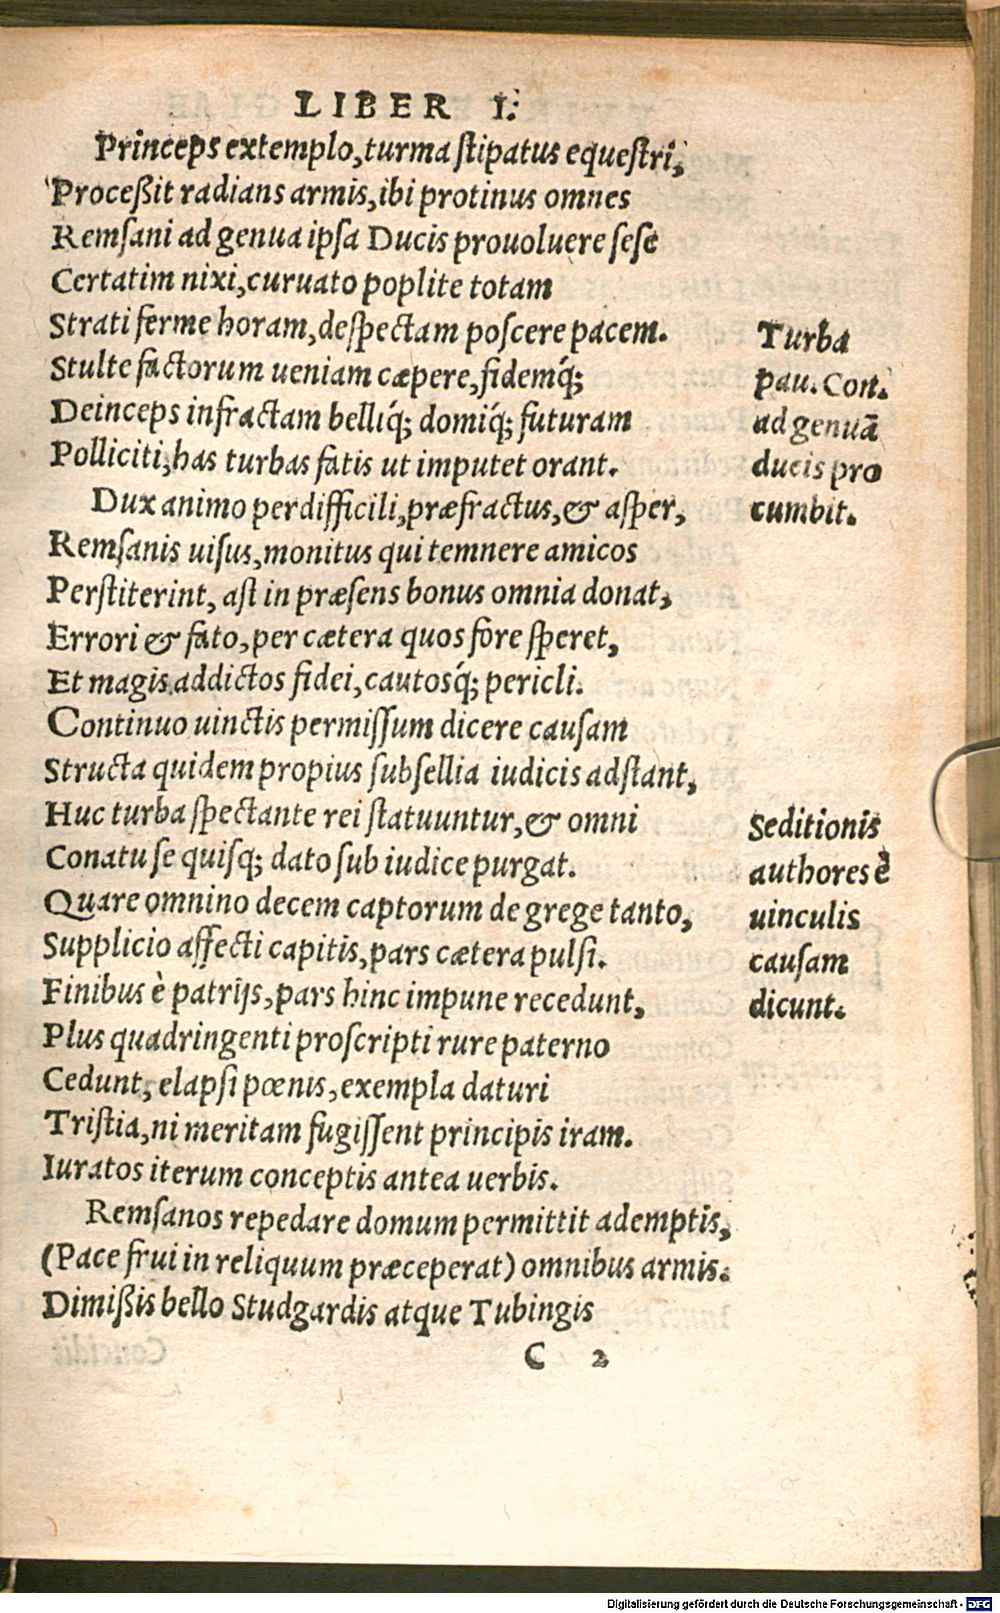 LIBER I.
Princeps extemplo, turma stipatus equestri,
Proceßit radians armis, ibi protinus omnes
Remsani ad genua ipsa Ducis prouoluere sese
Certatim nixi, curuato poplite totam
Strati ferme horam, despectam poscere pacem.
Stulte factorum ueniam cæpere, fidemq́;
Deinceps infractam belliq́; domiq́; futuram
Polliciti, has turbas fatis ut imputet orant.
Turba
pau. Con.
ad genuā
ducis pro
cumbit.
Dux animo perdifficili, præfractus, & asper,
Remsanis uisus, monitus qui temnere amicos
Perstiterint, ast in præsens bonus omnia donat,
Errori & fato, per cætera quos fore speret,
Et magis addictos fidei, cautosq́; pericli.
Continuo uinctis permissum dicere causam
Structa quidem propius subsellia iudicis adstant,
Huc turba spectante rei statuuntur, & omni
Conatu se quisq; dato sub iudice purgat.
Quare omnino decem captorum de grege tanto,
Supplicio affecti capitis, pars cætera pulsi.
Finibus è patrijs, pars hinc impune recedunt,
Seditionis
authores è
uinculis
causam
dicunt.
Plus quadringenti proscripti rure paterno
Cedunt, elapsi pœnis, exempla daturi
Tristia, ni meritam fugissent principis iram.
Iuratos iterum conceptis antea uerbis.
Remsanos repedare domum permittit ademptis,
(Pace frui in reliquum præceperat) omnibus armis.
Dimißis bello Studgardis atque Tubingis
C 2
Digitalisierung gefördert durch die Deutsche Forschungsgemeinschaft - DFG